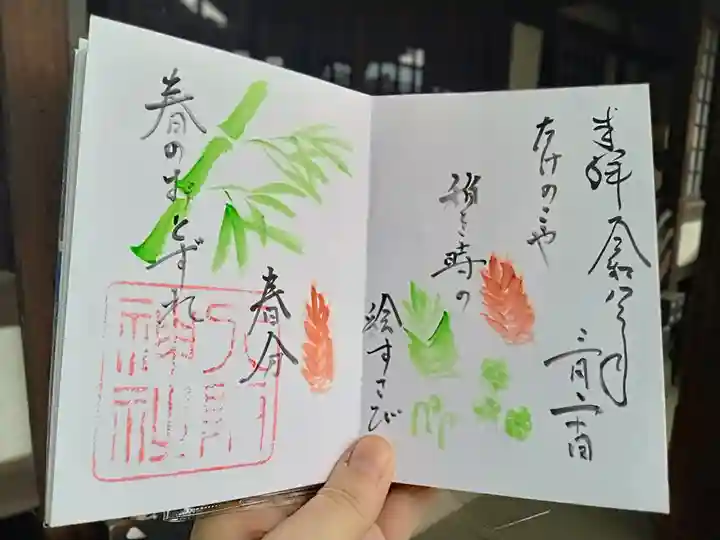 奉拝
三月二十日
たけのこや
稚き時の
絵すさび
春のおとずれ
春分
神社